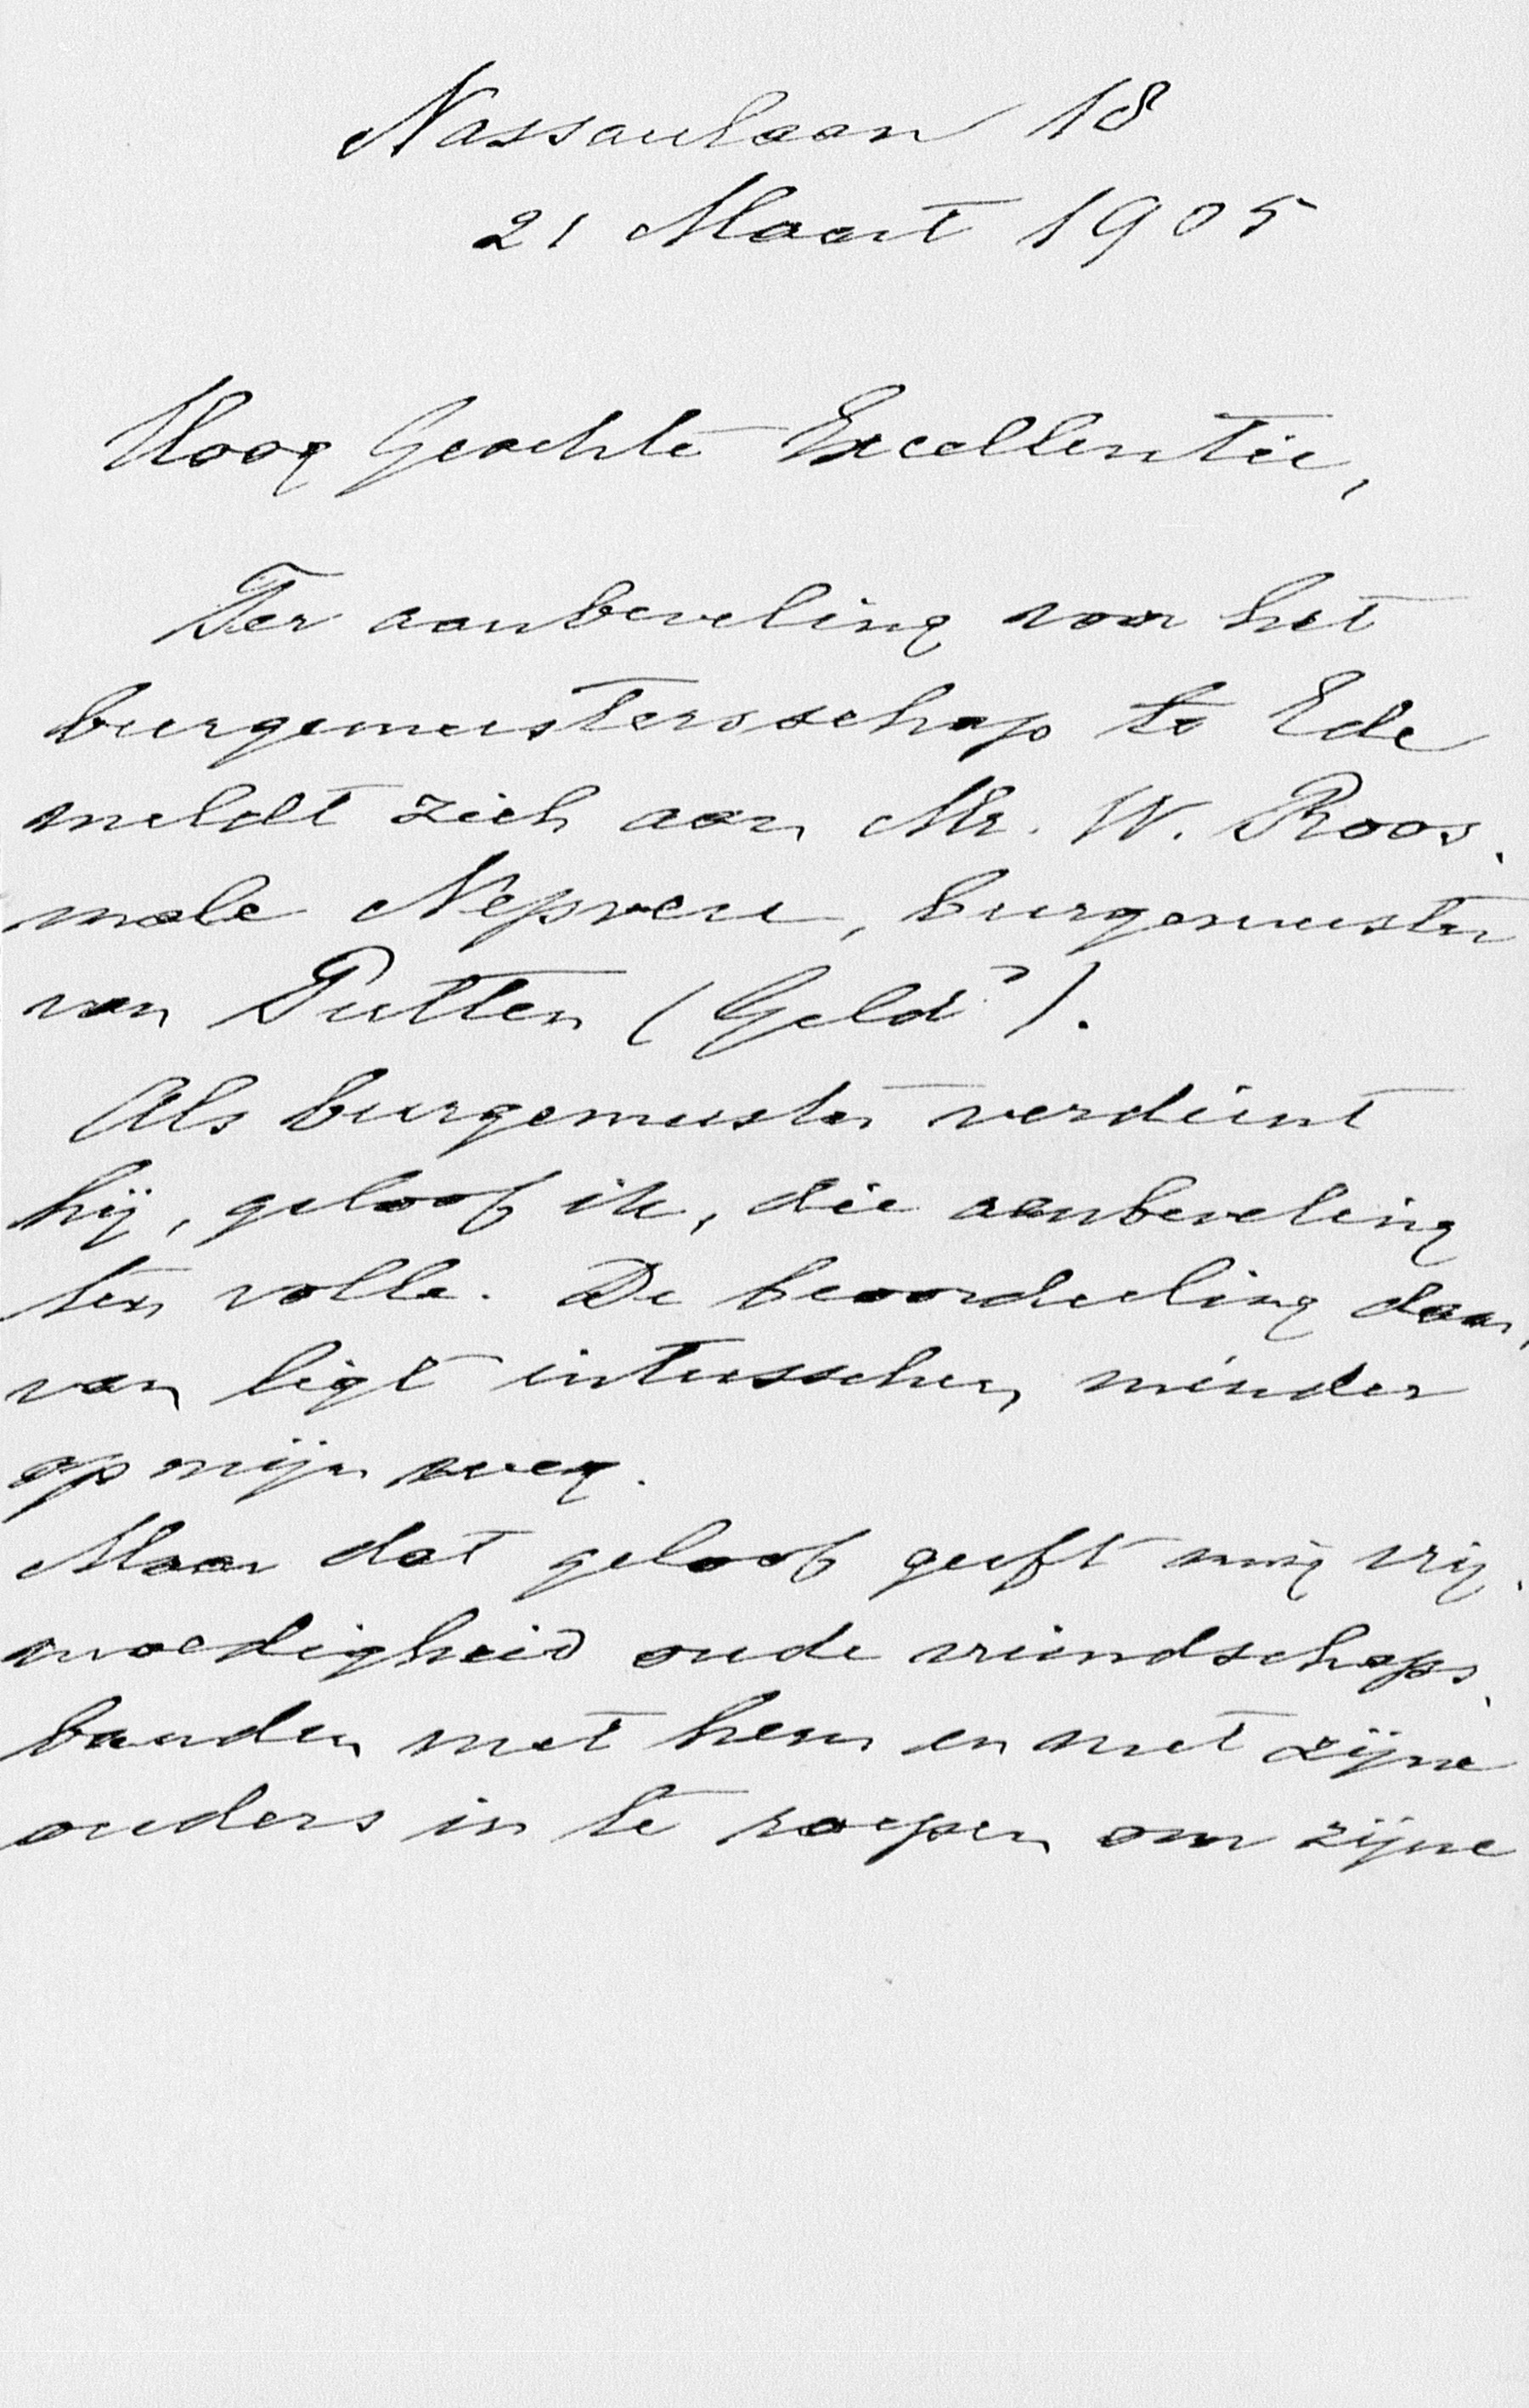 Nassaulaan 18
21 Maart 1905
Hoog Geachte Excellentie,
Ter aanbeveling voor het
burgemeestersschap te Ede
meldt zich aan Mr. W. Roos-
male Nepveu, burgemeester
van Putten (Geldd).
Als burgemeester verdient
hij, geloof ik, die aanbeveling
ten volle. De beoordeeling daar-
van ligt intusschen minder
op mijn weg.
Maar dat geloof geeft mij vrij-
moedigheid oude vriendschaps-
banden met hem en met zijne
ouders in te roepen om zijne